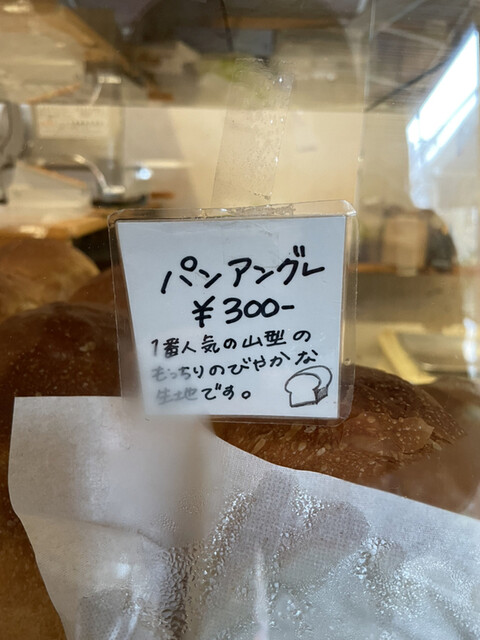 パンアングレ
¥300-
1番人気の山型の
もっちりのびやかな
生地です。